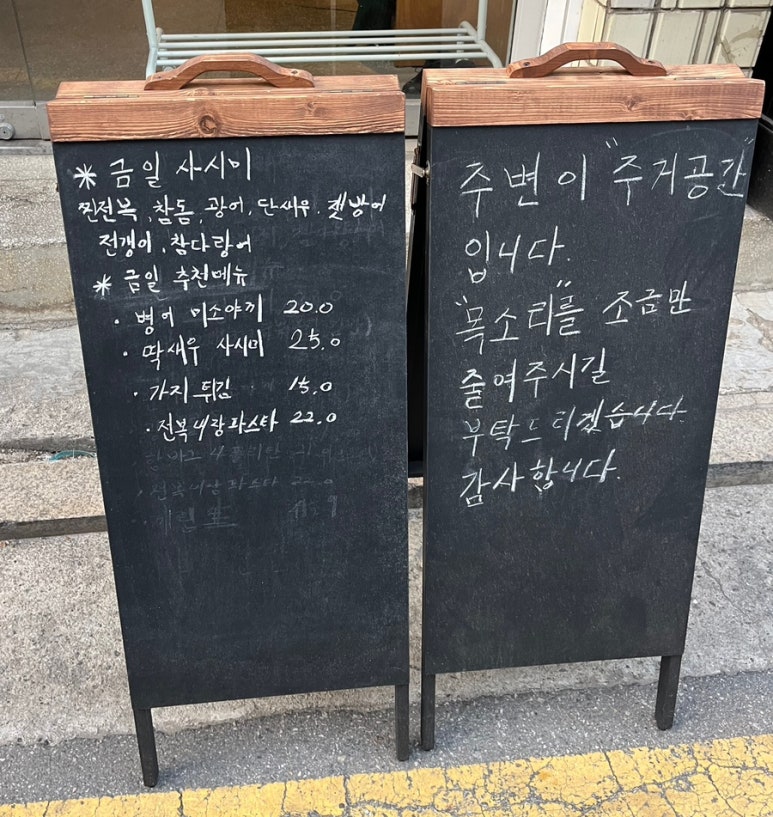 * 금일 사시미
찐전복, 참돔, 광어, 단새우, 잿방어
전갱이, 참다랑어
* 금일 추천메뉴
· 병어 미소야끼 20.0
· 딱새우 사시미 25.0
· 가지 튀김 15.0
· 전복내장파스타 22.0
· 전복내장파스타 22.0
주변이 "주거공간"
입니다.
"목소리"를 조금만
줄여주시길
부탁드리겠습니다.
감사합니다.